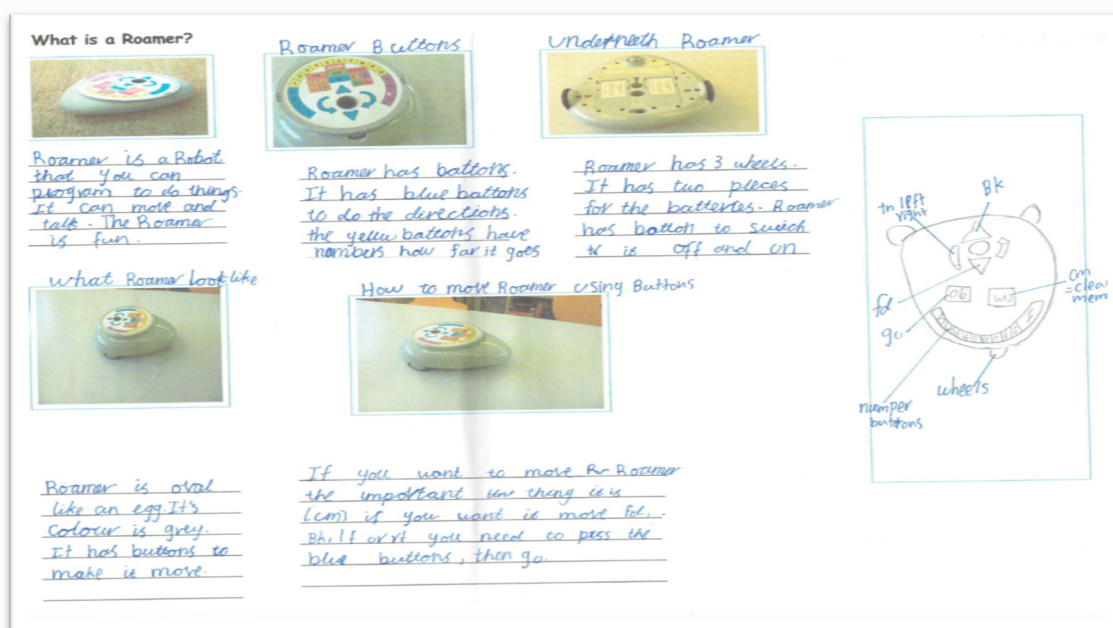 What is a Roamer?
Roamer is a Robot
that you can
program to do things.
It can move and
talk. The Roamer
is fun.
Roamer Buttons
Roamer has battons.
It has blue battons
to do the directions.
the yellw battons have
nambers how far it goes
Underneeth Roamer
Roamer has 3 wheels.
It has two pleces
for the batteries. Roamer
has batton to switch
it off and on
what Roamer look like
Roamer is oval
like an egg. It's
colour is grey.
It has buttons to
make it move.
How to move Roamer using Buttons
If you want to move Roamer
the important thing it is
(cm) if you want it move fd,
Bk, lf or rt you need to press the
blue buttons, then go.
Bk
tn left
right
fd
go
cm
=clear
mem
wheels
numper
buttons